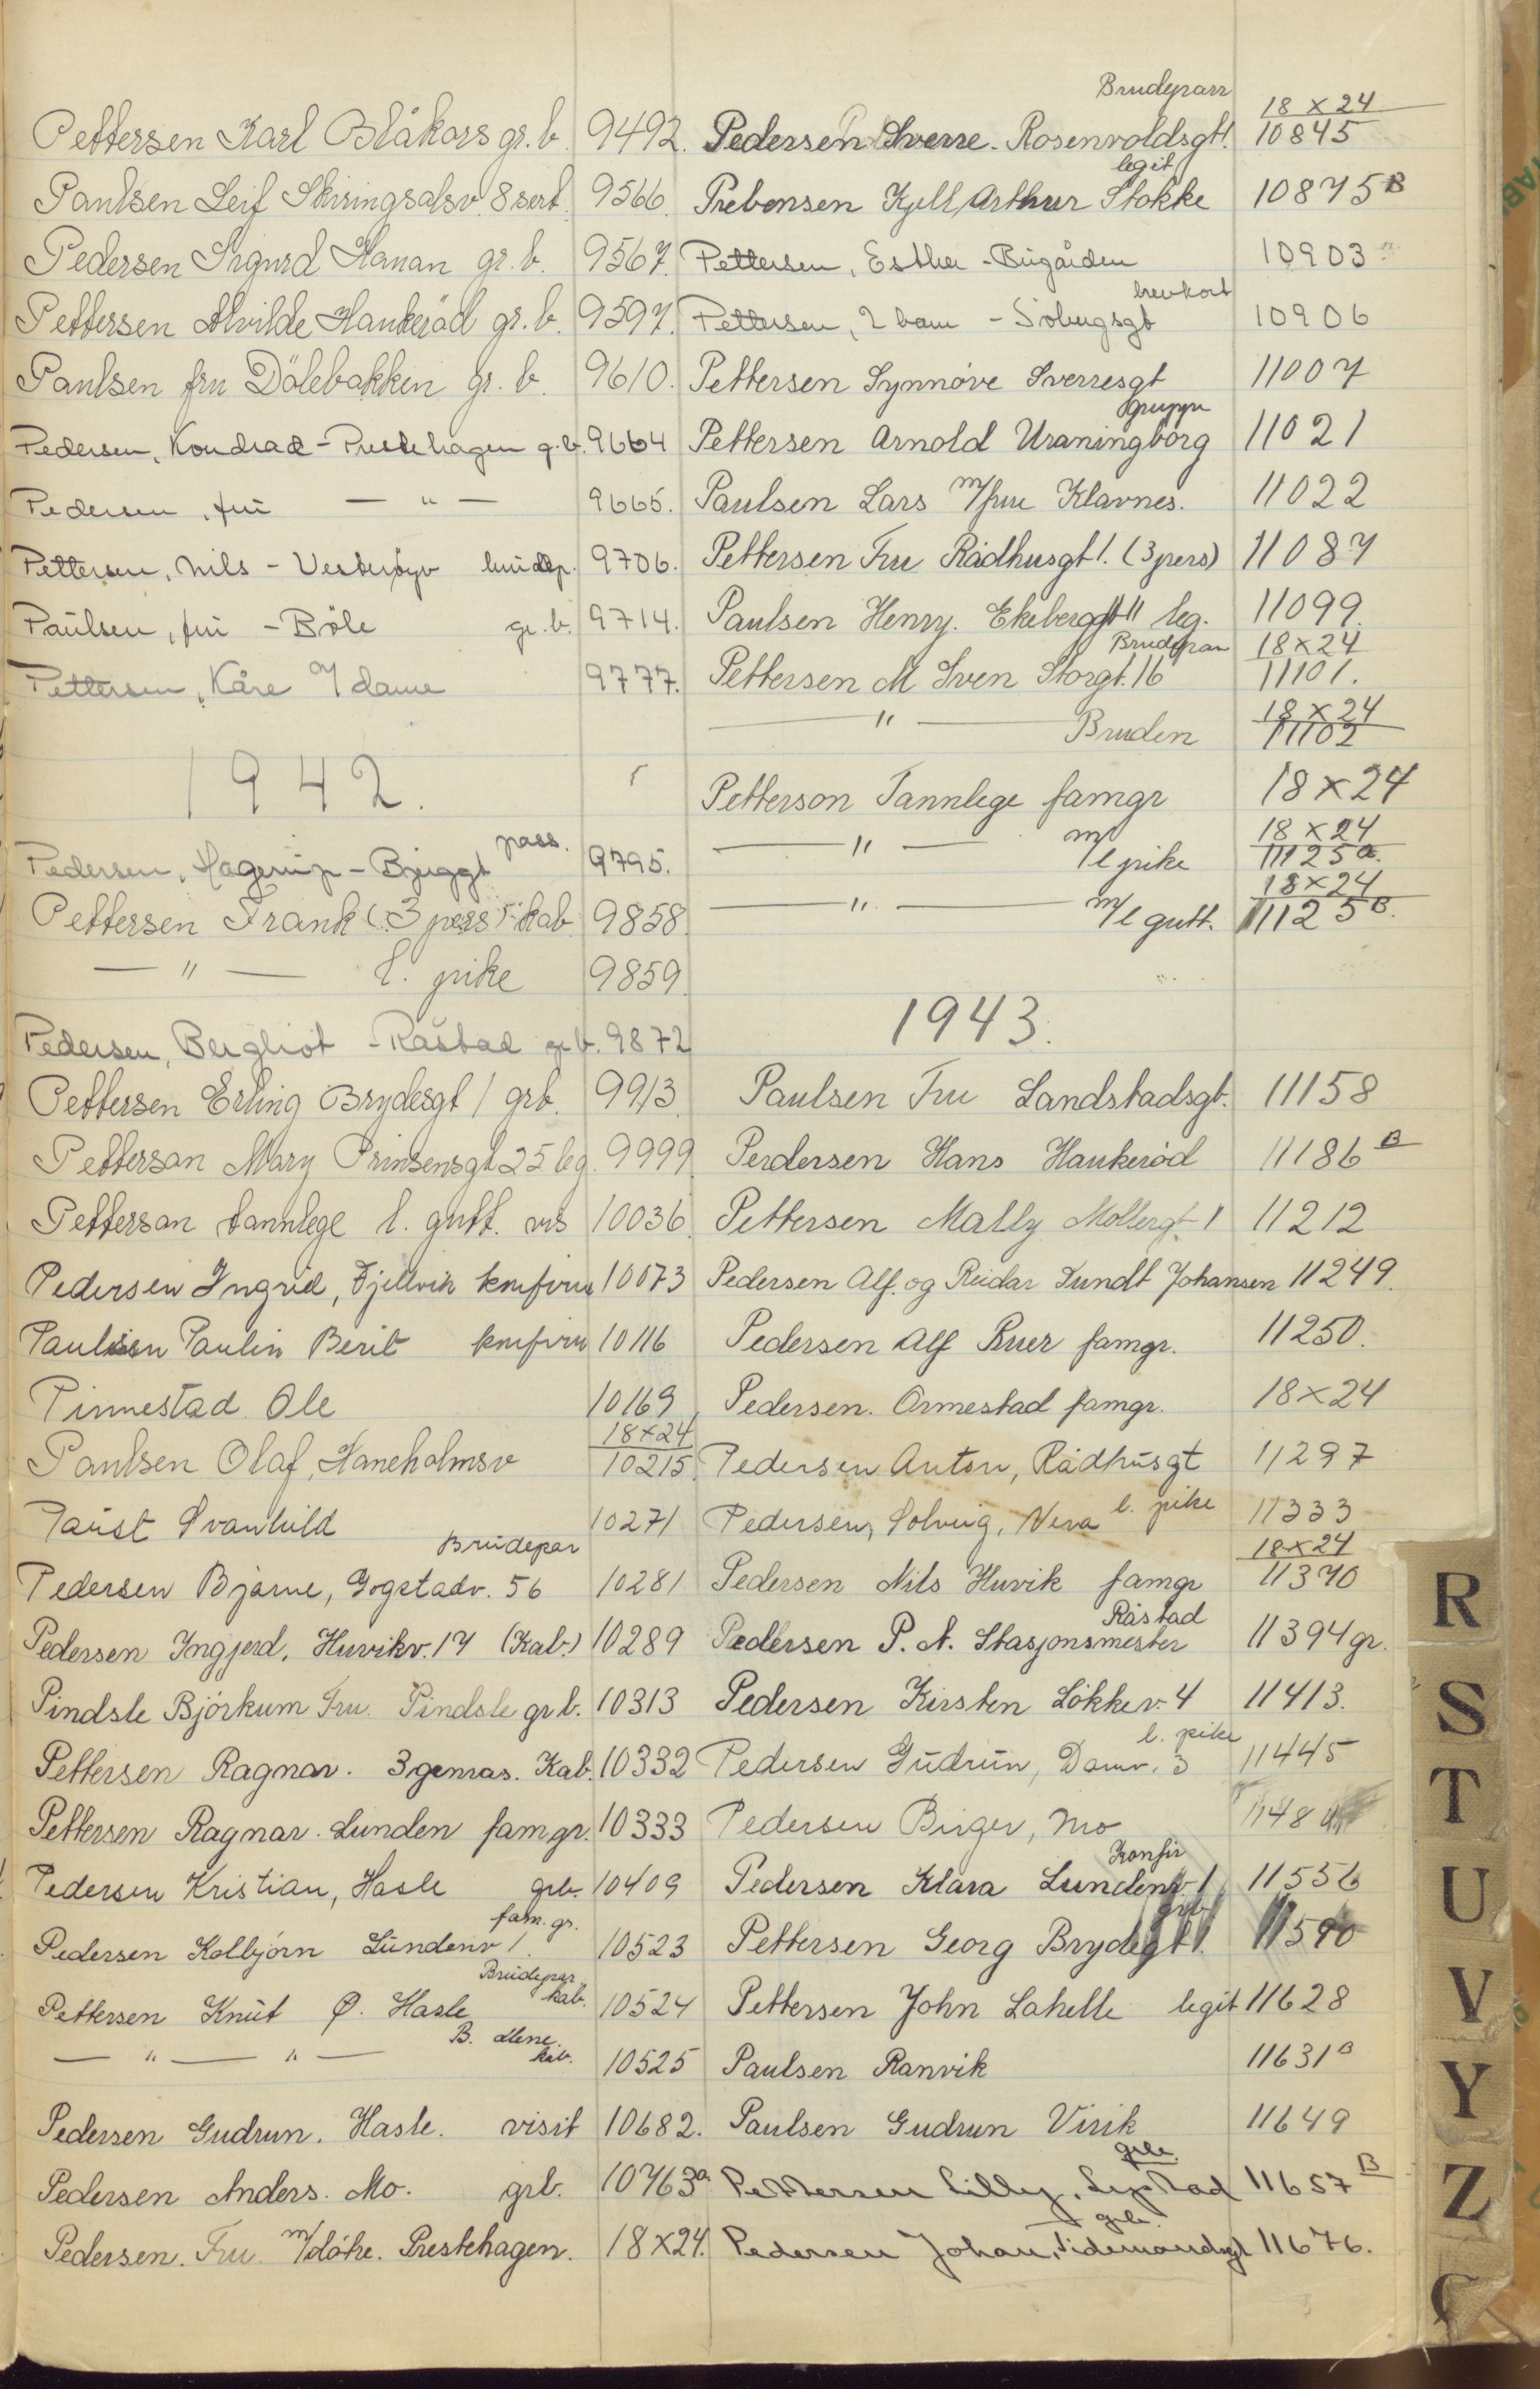 Pettersen Karl Blåkors gr. b. 9492.
Paulsen Leif Skiringsalsv. 8 sert. 9566
Pedersen Sigurd Hauan gr. b. 9567.
Pettersen Alvilde Haukeröd gr. b. 9597.
Paulsen fru Dölebakken gr. b. 9610.
Pedersen, Kondrad - Prestehagen g.b. 9664
Pedersen, fru — " — 9665.
Pettersen, Nils - Vesterøyv 9706.
Paulsen, fru - Bøle gr. b. 9714.
Pettersen, Kåre m/ dame 9777.
1942.
pass.
Pedersen, Hagerup - Bjerggt 9795.
Pettersen Frank (3 pers) kab 9858
— " — l. pike 9859
Pedersen, Bergliot - Råstad gr b. 9872
Pettersen Erling Brydesgt 1 grb. 9913
Petterson Mary Prinsensgt 25 leg. 9999
Petterson tannlege l. gutt. vis 10036
Pedersen Ingrid, Fjellvik konfirm 10073
Paulsen Paulin Berit konfirm 10116
Pinnestad Ole 10169
Paulsen Olaf, Haneholmsv 18x24 10215
Paust Svanhild 10271
Brudepar
Pedersen Bjarne, Gogstadv. 56 10281
Pedersen Yngjerd, Huvikv. 17 (Kab.) 10289
Pindsle Björkum Fru. Pindsle gr b. 10313
Pettersen Ragnar. 3 genras. Kab. 10332
Pettersen Ragnar. Lunden famgr. 10333
Pedersen Kristian, Hasle grb. 10409
fam. gr.
Pedersen Kolbjørn Lundenv 1. 10523
Brudepar kab.
Pettersen Knut Ø. Hasle 10524
— " — " — B. alene kab. 10525
Pedersen Gudrun. Hasle. visit 10682.
Pedersen Anders. Mo. grb. 10763a
Pedersen. Fru. m/döke. Prestehagen. 18x24.
Brudeparr 18 x 24
Pedersen Sverre - Rosenvoldsgt 1. 10845
legit
Prebensen Kjell Arthur Stokke 10875 B
Pettersen, Esther - Bugården 10903
brevkort
Pettersen, 2 barn - 10906
Pettersen Synnøve Sverresgt 11007
gruppe
Pettersen Arnold Uraningborg 11021
Paulsen Lars m/frue Klavnes. 11022
Pettersen Fru Rådhusgt 1. (3 pers) 11087
Paulsen Henry. Ekebergt 11 leg. 11099.
Brudepar 18x24
Pettersen M Sven Storgt. 16 11101.
— " — Bruden 18 x 24 11102
Petterson Tannlege famgr 18 x 24
— " — m/ l pike 18 x 24 11125a.
— " — m/ l gutt. 18x24 11125 B.
1943.
Paulsen Fru Landstadsgt. 11158
Perdersen Hans Haukeröd 11186 B
Pettersen Mally Mollergt 1 11212
Pedersen Alf. og Reidar Lundt Johansen 11249.
Pedersen Alf Ruer famgr. 11250.
Pedersen. Ormestad famgr. 18x24
Pedersen Anton, Rådhusgt 11297
Pedersen, Solveig, Vera l. pike 11333
Pedersen Nils Huvik famgr 18x24 11370
Råstad
Pedersen P. A. Stasjonsmester 11394 gr.
Pedersen Kirsten Lökkev. 4 11413.
l. pike
Pedersen Gudrun, Damv. 3 11445
Pedersen Birger, Mo 1148
Konfir
Pedersen Klara Lundenv 1 11556
grb
Pettersen Georg Brydegt 1. 11590
Pettersen John Lahelle legit 11628
Paulsen Ranvik 11631 B
Paulsen Gudrun Virik 11649
grb.
Pettersen Lilly, 11657 B
grb.
Pedersen Johan, Tidemandsgt 11676.
R
S
T
U
V
Y
Z